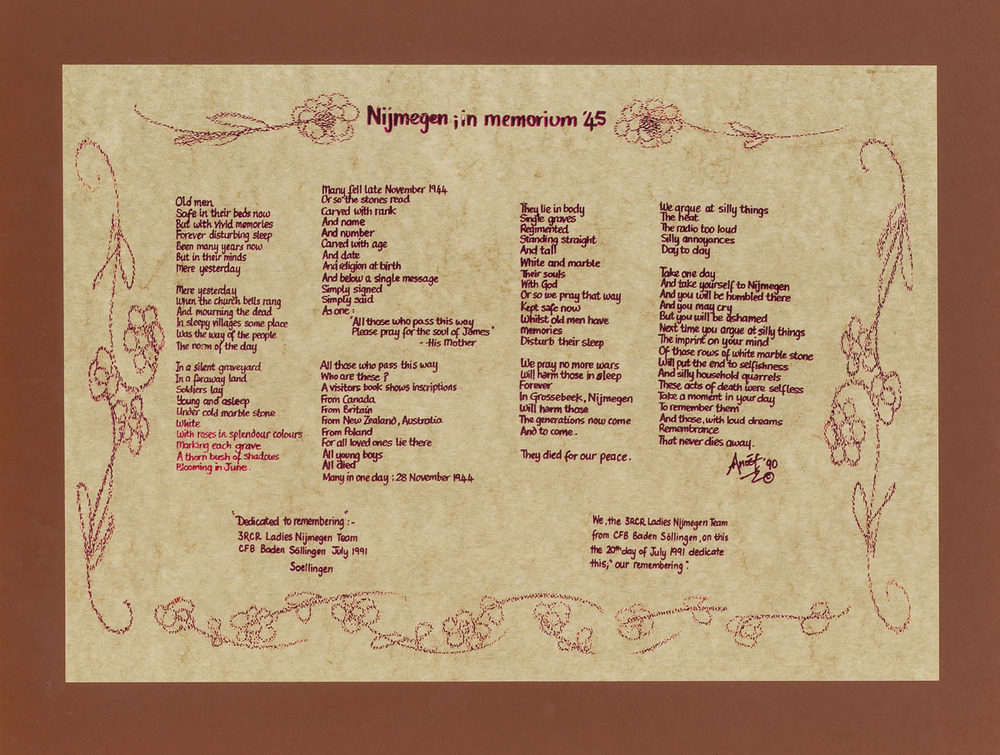 Nijmegen ; in memorium '45
Old men
Safe in their beds now
But with vivid memories
Forever disturbing sleep
Been many years now
But in their minds
Mere yesterday
Mere yesterday
When the church bells rang
And mourning the dead
In sleepy villages some place
Was the way of the people
The norm of the day
In a silent graveyard
In a faraway land
Soldiers lay
Young and asleep
Under cold marble stone
White
With roses in splendour colours
Marking each grave
A thorn bush of shadows
Blooming in June.
Many fell late November 1944
Or so the stones read
Carved with rank
And name
And number
Carved with age
And date
And religion at birth
And below a single message
Simply signed
Simply said
As one :
"All those who pass this way
Please pray for the soul of James"
- His Mother
All those who pass this way
Who are these ?
A visitors book shows inscriptions
From Canada
From Britain
From New Zealand, Australia
From Poland
For all loved ones lie there
All young boys
All died
Many in one day : 28 November 1944
They lie in body
Single graves
Regimented
Standing straight
And tall
White and marble
Their souls
With God
Or so we pray that way
Kept safe now
Whilst old men have
memories
Disturb their sleep
We pray no more wars
Will harm those in sleep
Forever
In Grossebeek, Nijmegen
Will harm those
The generations now come
And to come.
They died for our peace.
We argue at silly things
The heat
The radio too loud
Silly annoyances
Day to day
Take one day
And take yourself to Nijmegen
And you will be humbled there
And you may cry
But you will be ashamed
Next time you argue at silly things
The imprint on your mind
Of those rows of white marble stone
Will put the end to selfishness
And silly household quarrels
These acts of death were selfless
Take a moment in your day
To remember them
And those, with loud dreams
Remembrance
That never dies away.
'90
©
"Dedicated to remembering" :-
3RCR Ladies Nijmegen Team
CFB Baden Söllingen July 1991
Soellingen
We, the 3RCR Ladies Nijmegen Team
from CFB Baden Söllingen, on this
the 20th day of July 1991 dedicate
this, "our remembering".